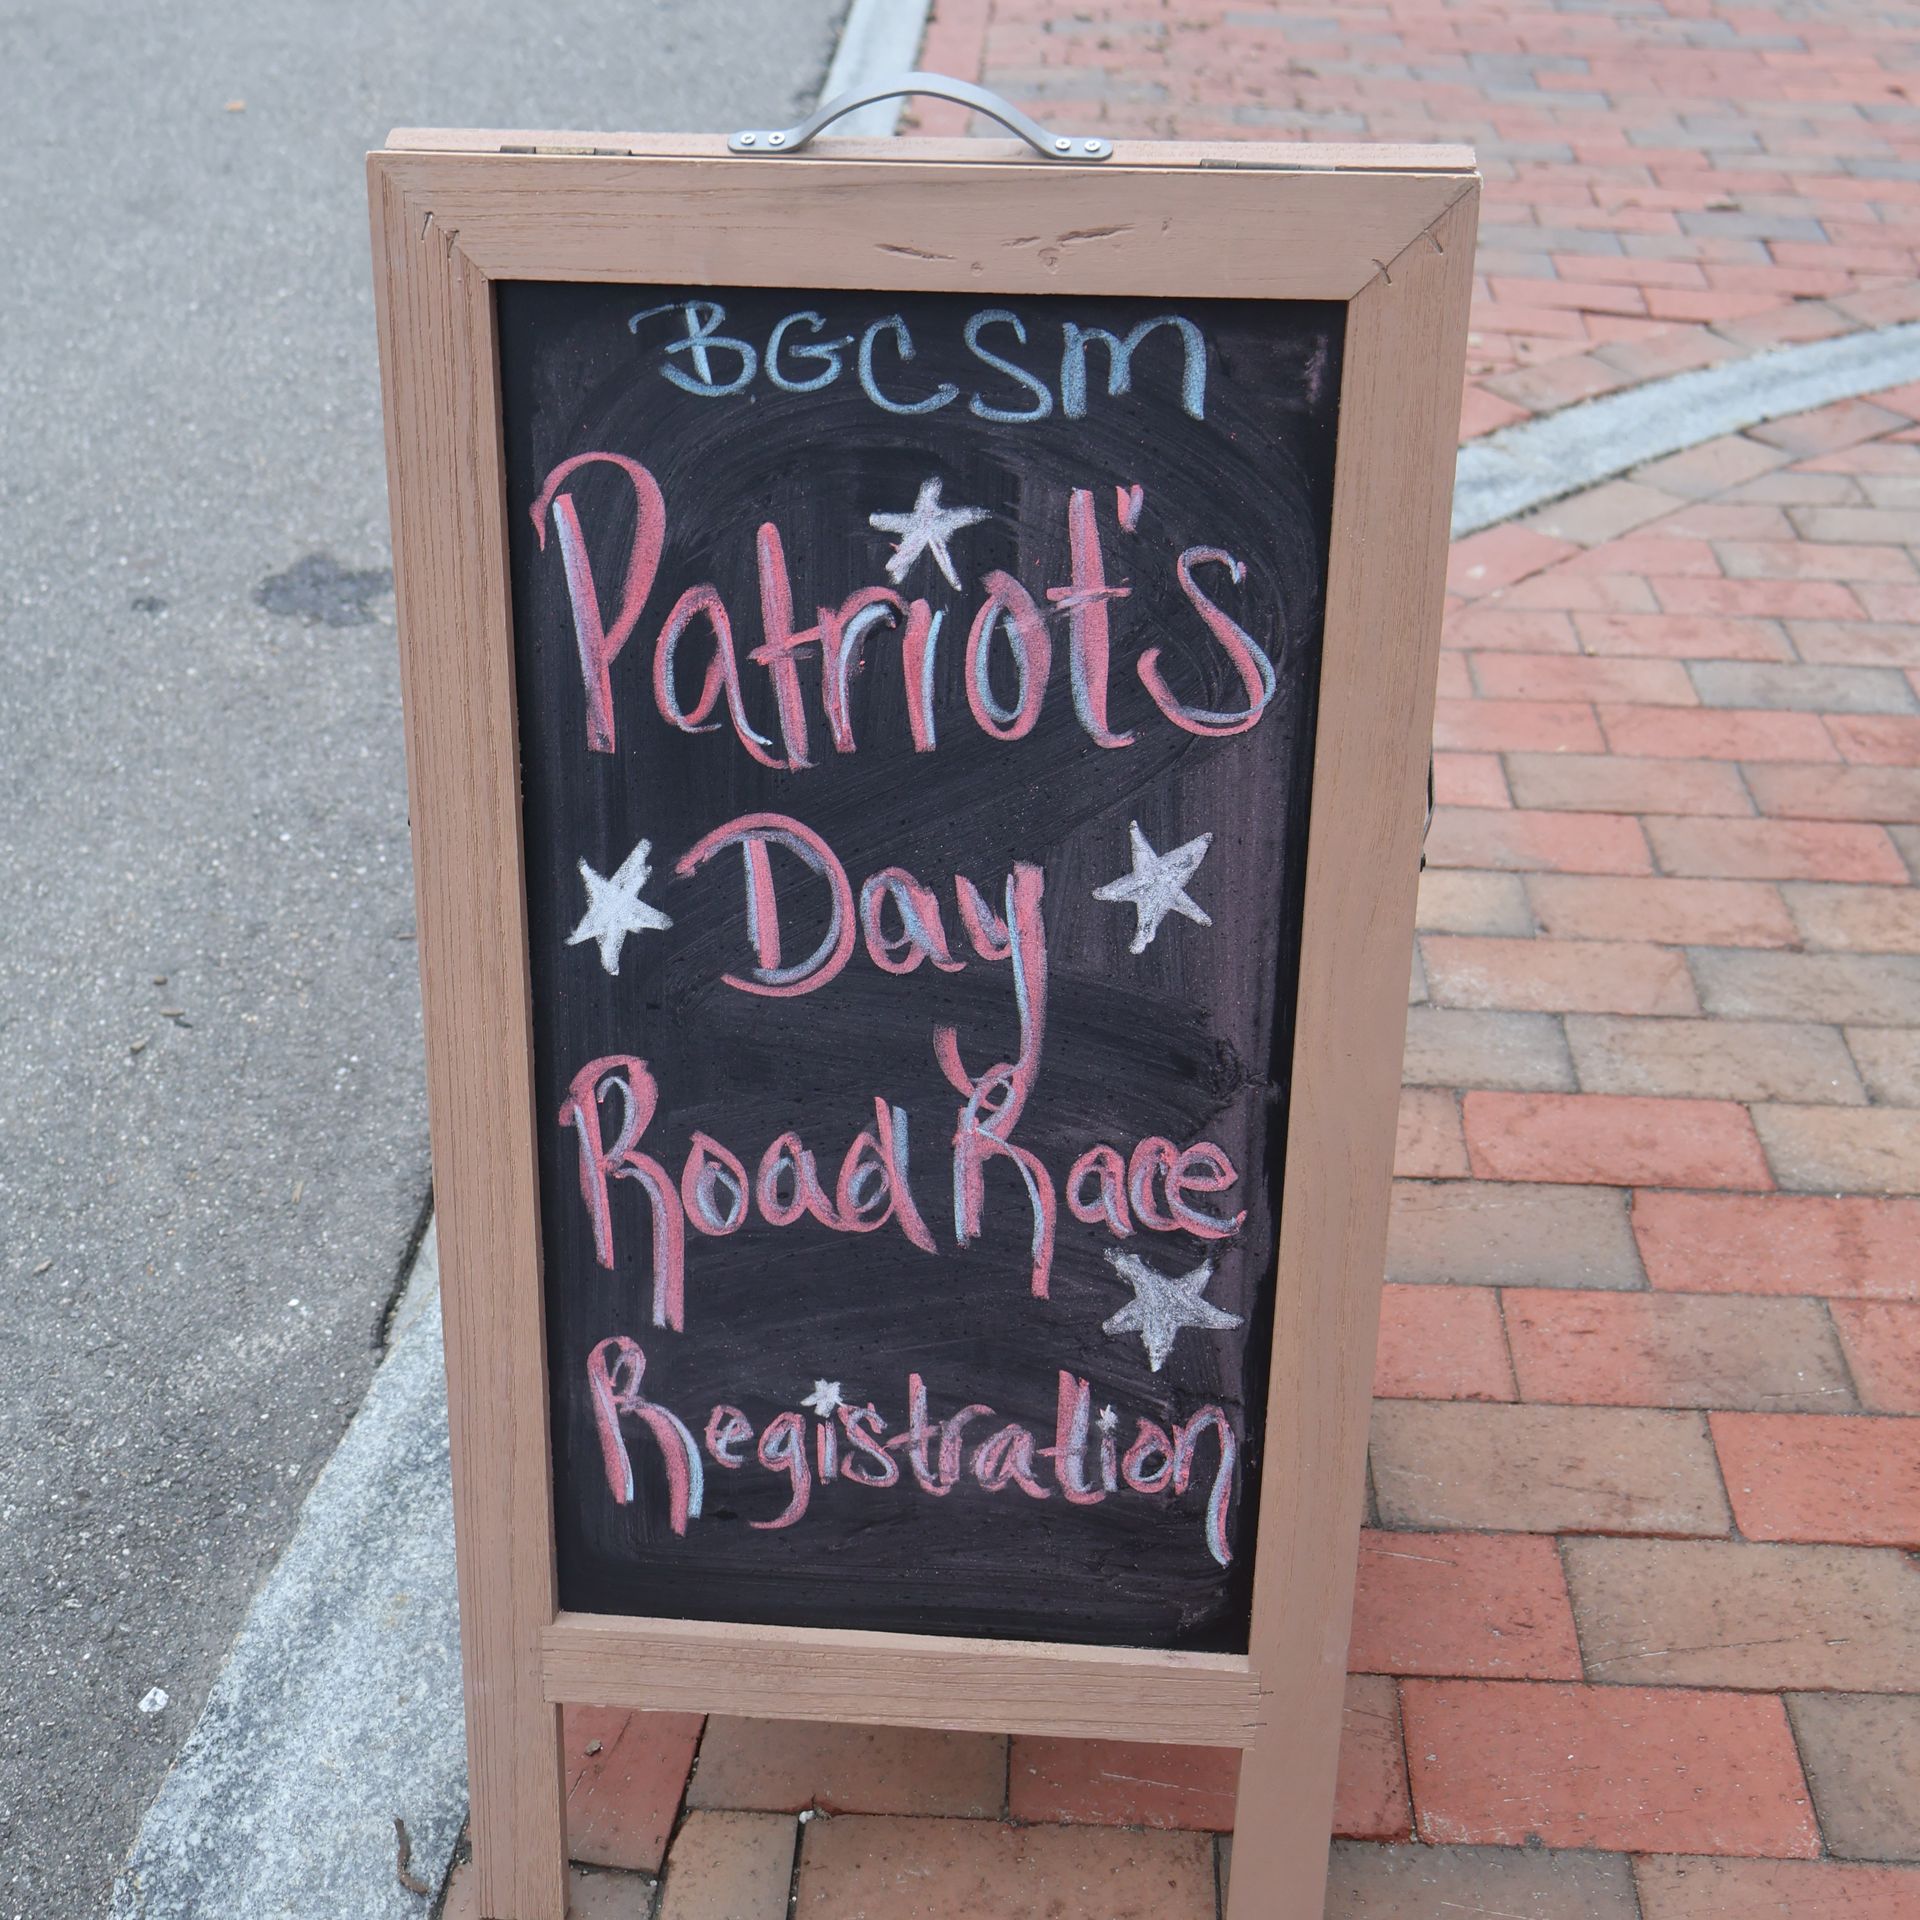 BGCSM
Patriot's
Day
Road Race
Registration